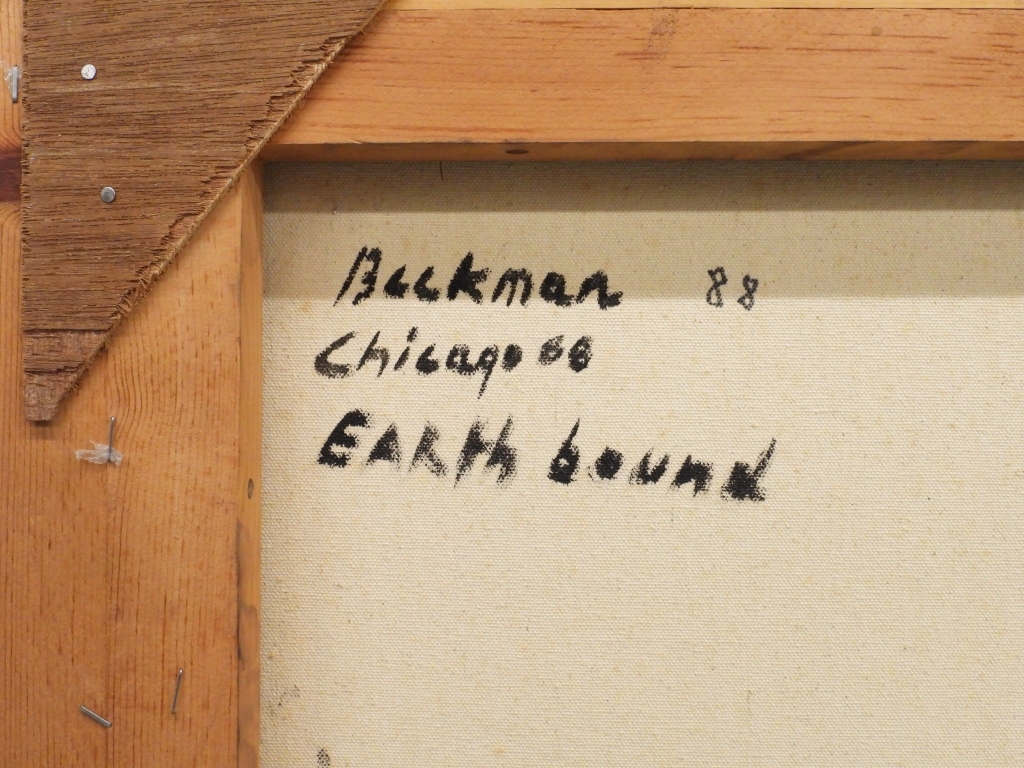 Beckman 88
Chicago 88
EARth bound